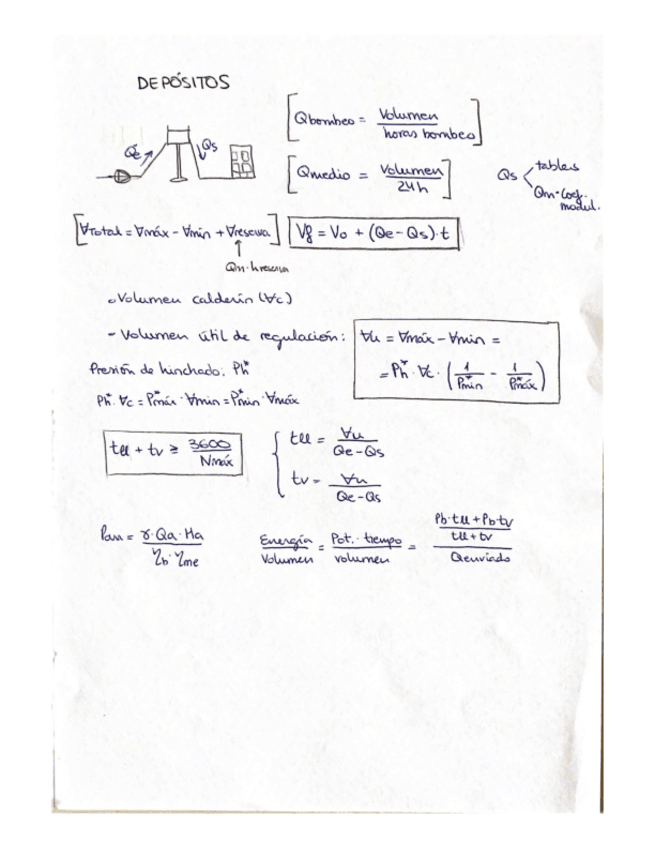 DEPÓSITOS
Qbombeo = Volumen / horas bombeo
Qe Qs
Qmedio = Volumen / 24h
Qs < tablas
Qm·coef. modul.
∀Total = ∀máx - ∀mín + ∀reserva
Vf = Vo + (Qe - Qs)·t
Qm·hreserva
Volumen calderín (∀c)
- Volumen útil de regulación:
∀u = ∀máx - ∀mín =
= Ph*·∀c·(1/P*mín - 1/P*máx)
Presión de hinchado: Ph*
Ph*·∀c = P*máx·∀mín = P*mín·∀máx
tll + tv ≥ 3600 / Nmáx
tll = ∀u / Qe - Qs
tv = ∀u / Qe - Qs
Pabs = γ·Qa·Ha / ηb·ηme
Energía / Volumen = Pot.·tiempo / volumen = (Pb·tll + Pb·tv / tll + tv) / Qenviado